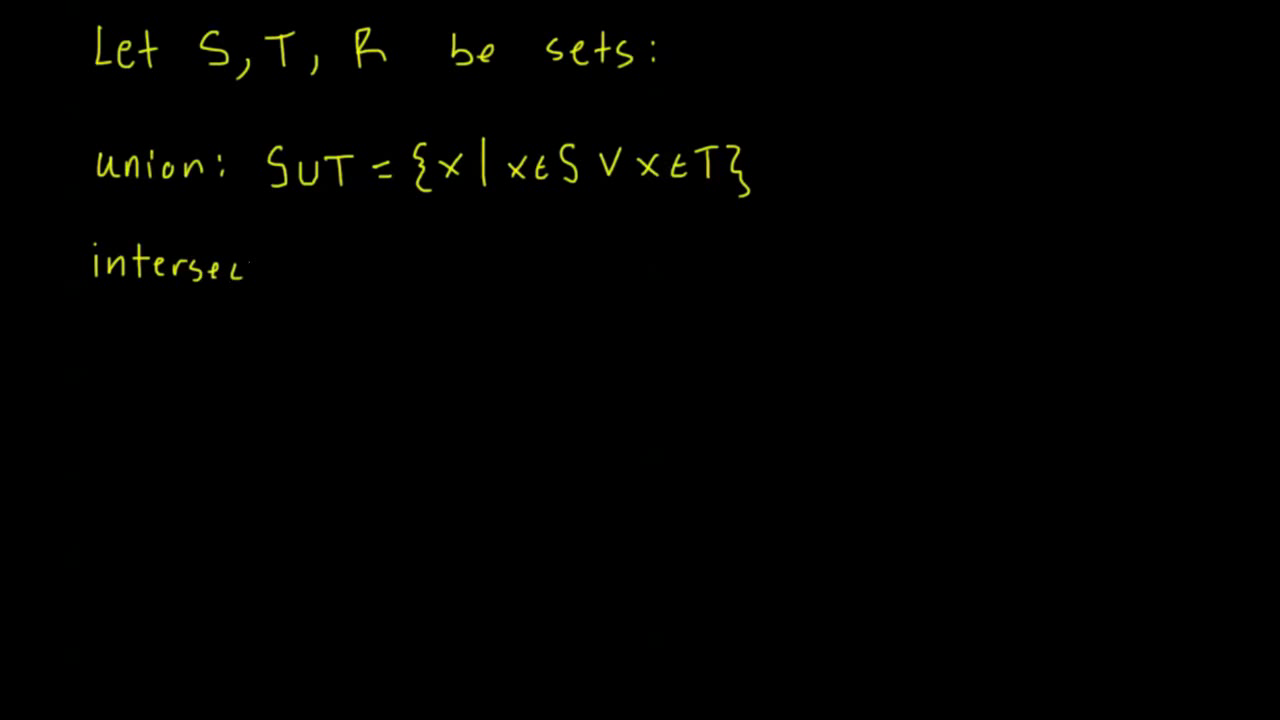 Let S, T, R be sets:
union: S∪T = {x | x∈S ∨ x∈T}
intersec